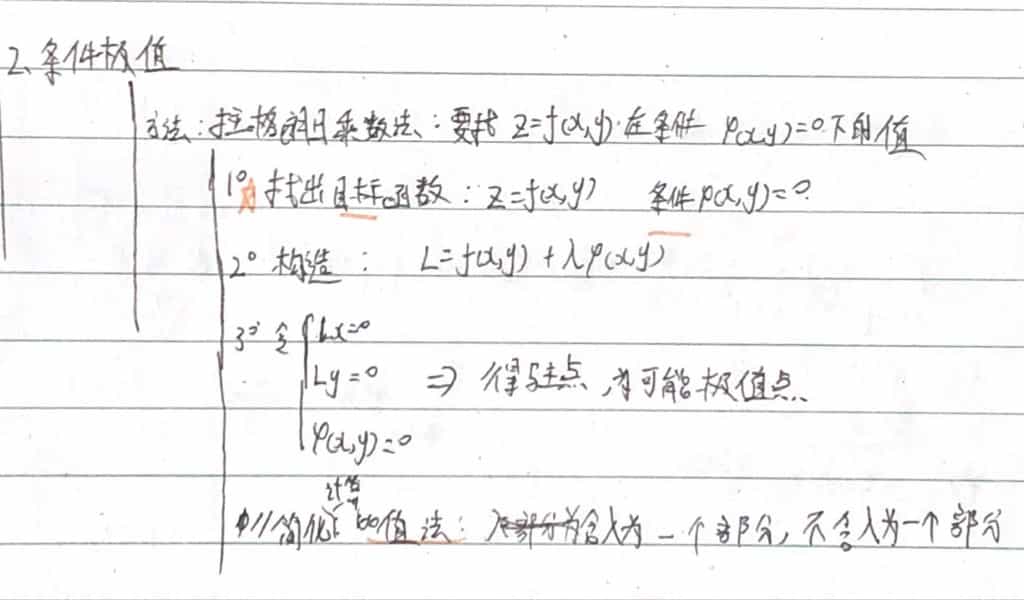 2、条件极值
方法:拉格朗日乘数法:要找 z=f(x,y)在条件 φ(x,y)=0下的值
1° 找出目标函数:z=f(x,y) 条件φ(x,y)=0
2° 构造: L=f(x,y)+λφ(x,y)
3° 令 Lx=0
Ly=0 ⇒ 得驻点,为可能极值点.
φ(x,y)=0
计算
简化 值法: 含λ为一个部分,不含λ为一个部分